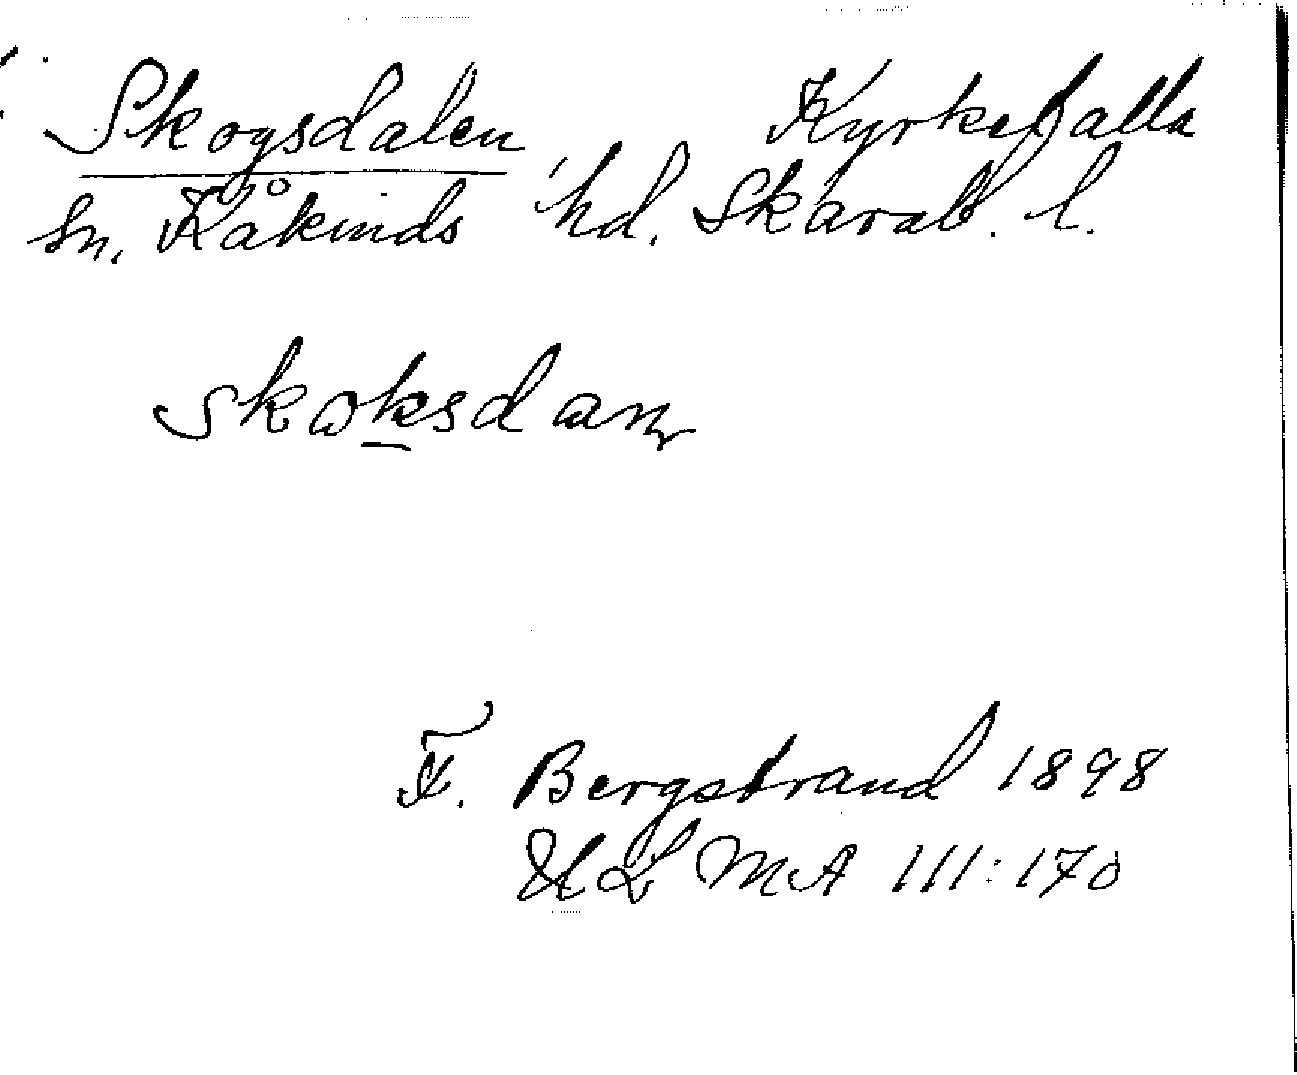 Skogsdalen Kyrkefalla
sn. Kåkinds hd. Skarab. l.
skoksdan
F. Bergstrand 1898
ULMA 111:170